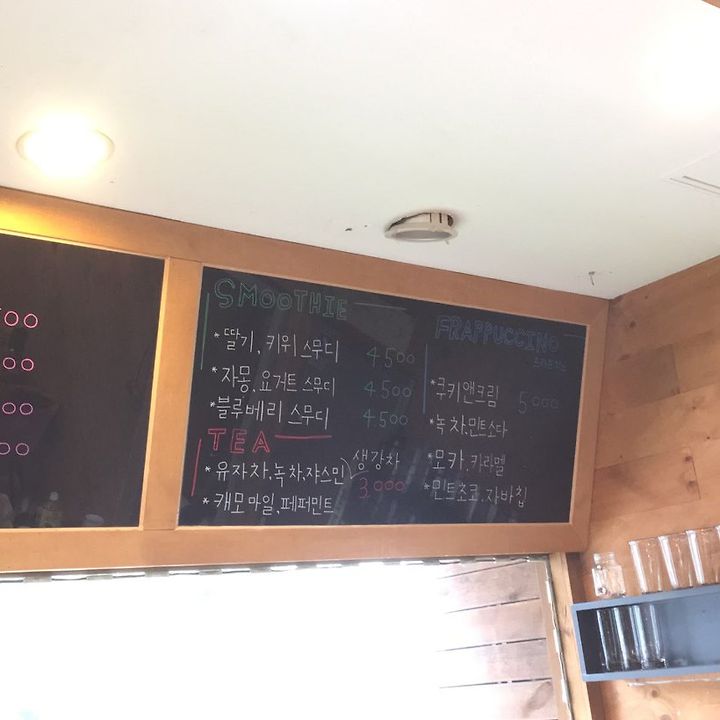 500
000
000
000
SMOOTHIE
*딸기, 키위 스무디 4.500
*자몽, 요거트 스무디 4.500
*블루베리 스무디 4.500
TEA
*유자차, 녹차, 쟈스민 생강차
*캐모마일, 페퍼민트 3.000
FRAPPUCCINO
*쿠키앤크림 5.000
*녹차, 민트소다
*모카, 카라멜
*민트초코, 자바칩